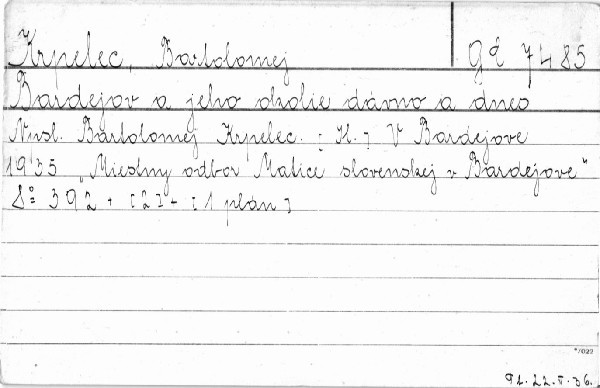 Krpelec, Bartolomej Gd 7485
Bardejov a jeho okolie dávno a dnes
Nasl. Bartolomej Krpelec. [H.] V Bardejove
1935 „Miestny odbor Matice slovenskej v Bardejove"
8° 392 + [2] + [1 plán]
*7022